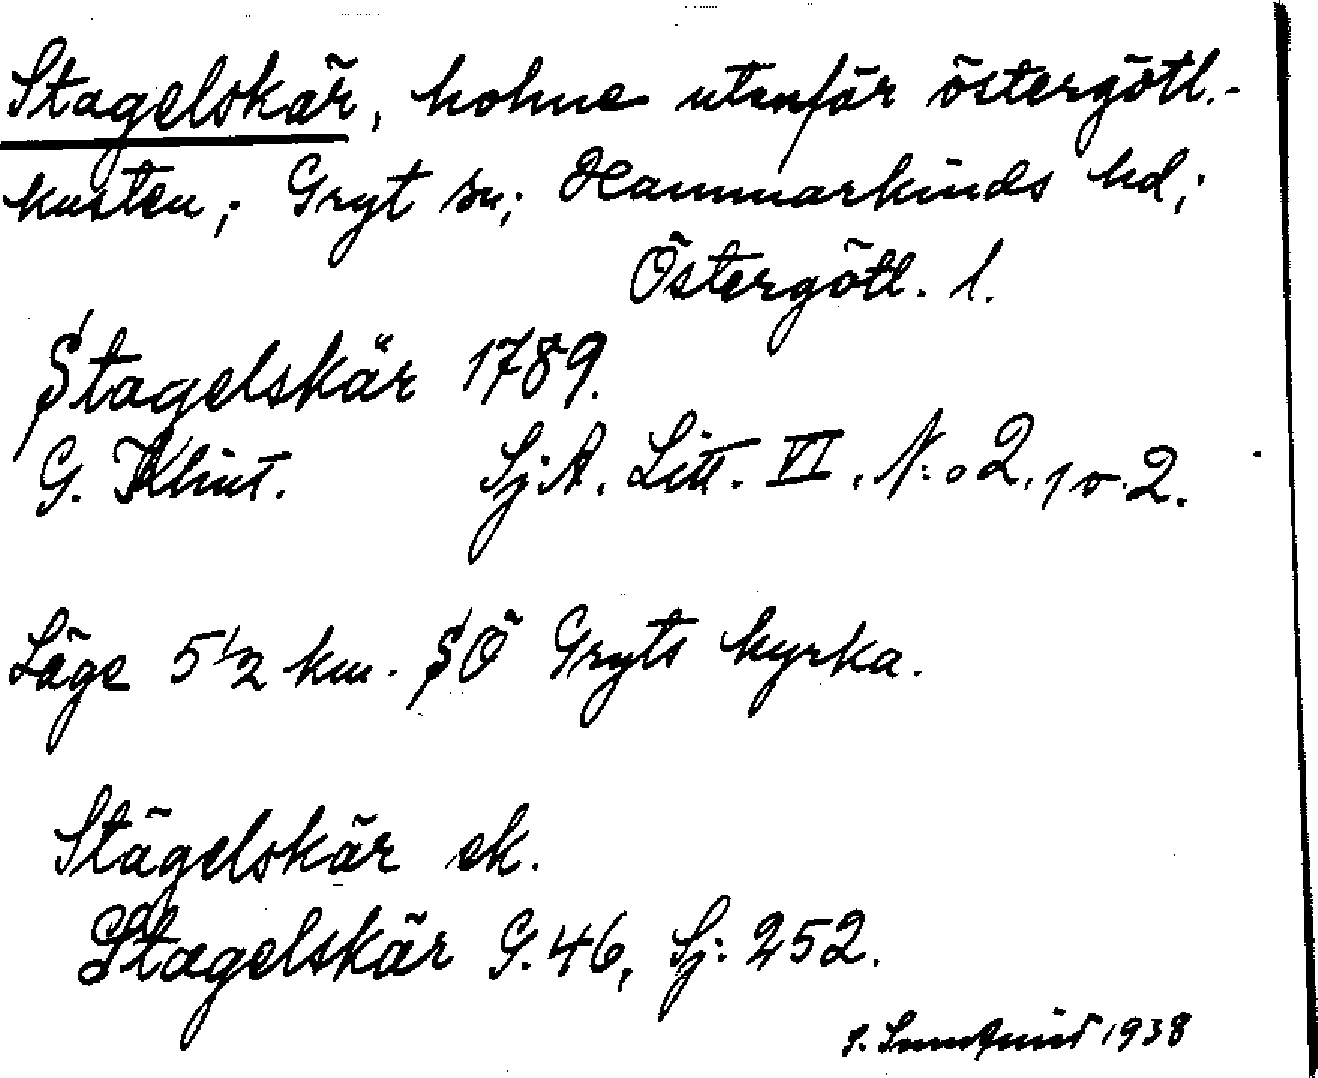 Stagelskär, holme utanför östergötl.-
kusten; Gryt sn; Hammarkinds hd;
Östergötl. l.
Stagelskär 1789.
G. Klint. Sj.A. Litt. VI. N:o 2. 1 o. 2.
Läge 5 1/2 km. SÖ Gryts kyrka.
Stägelskär ek.
Stagelskär G. 46, Sj: 252.
1938